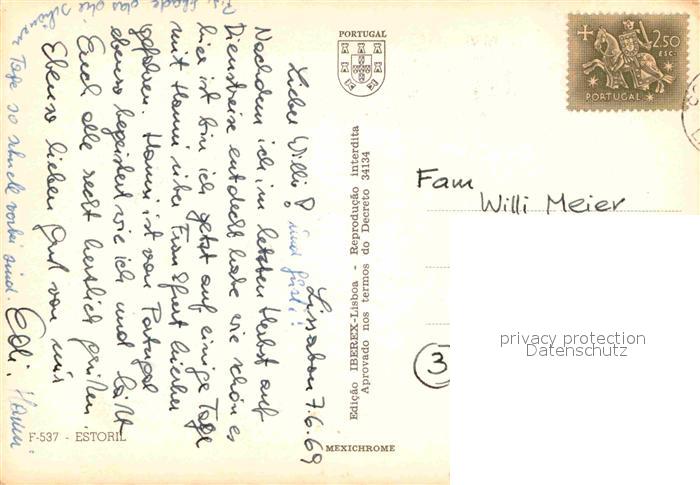 PORTUGAL
2.50
ESC.
PORTUGAL
Fam
Willi Meier
3
Edição IBEREX-Lisboa - Reprodução interdita
Aprovado nos termos do Decreto 34134
MEXICHROME
F-537 - ESTORIL
Lissabon 7.6.69
Lieber Willi! und Gusti!
Nachdem ich im letzten Herbst auf
Dienstreise entdeckt habe wie schön es
hier ist bin ich jetzt auf einige Tage
mit Hanni über Frankfurt hierher
geflohen. Hanni ist von Portugal
ebenso begeistert wie ich und läßt
Euch alle recht herzlich grüßen.
Ebenso lieben Gruß von mir
Edi. Hanni
P.S. Schade das die schönen
Tage so schnell vorbei sind.
privacy protection
Datenschutz